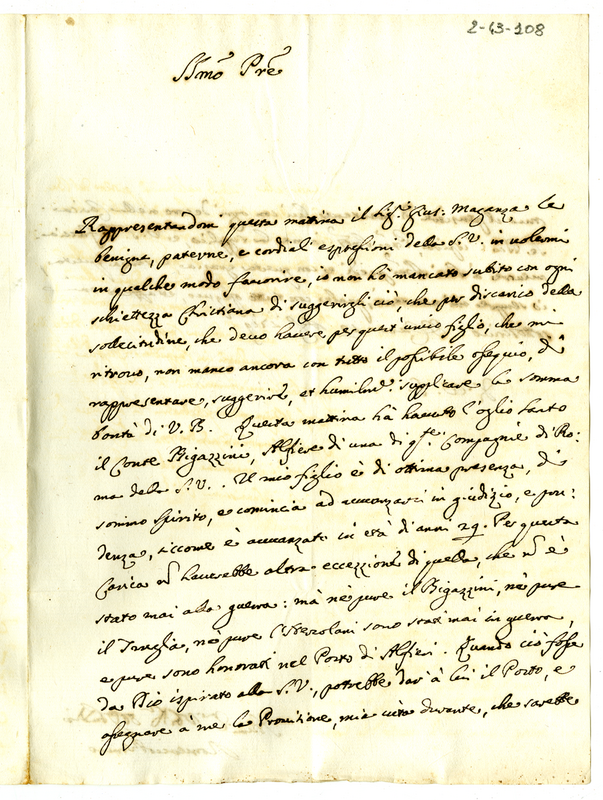 2-43-108
SS.mo Pre
Rappresentandomi questa mattina il Sig.r Gius. Maganza le
benigne, paterne, e cordiali espressioni della S.V. in volermi
in qualche modo favorire, io non hò mancato subito con ogni
schiettezza Christiana di suggerirgli ciò, che per discarico della
sollecitudine, che devo havere per quest'unico figlio, che mi
ritrovo, non manco ancora con tutto il possibile ossequio, di
rappresentare, suggerire, et humilm.e supplicare la somma
bontà di V.B. Questa mattina hà havuto l'oglio santo
il Conte Bigazzini, Alfiere di una di q.ste Compagnie di Ro:
ma della S.V.. Il mio figlio è di ottima presenza, di
sommo spirito, e comincia ad avvanzarsi in giudizio, e pru:
denza, siccome è avvanzato in età di anni 29. Per questa
Carica nõ haverebbe altra eccezzione di quella, che nõ è
stato mai alla guerra: mà nè pure il Bigazzini, nè pure
il, nè pure l'Hercolani sono stati mai in guerra,
e pure sono honorati nel Posto di Alfieri. Quando ciò fosse
da Dio ispirato alla S.V., potrebbe dar' à lui il Posto, e
assegnare à me la Provisione, mia vita durante, che sarebbe